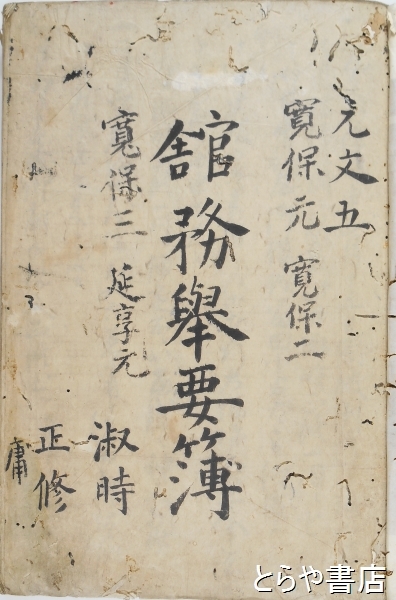 元文五
寛保元 寛保二
舘務舉要簿
寛保三 延享元
淑時
正修
庸
とらや書店